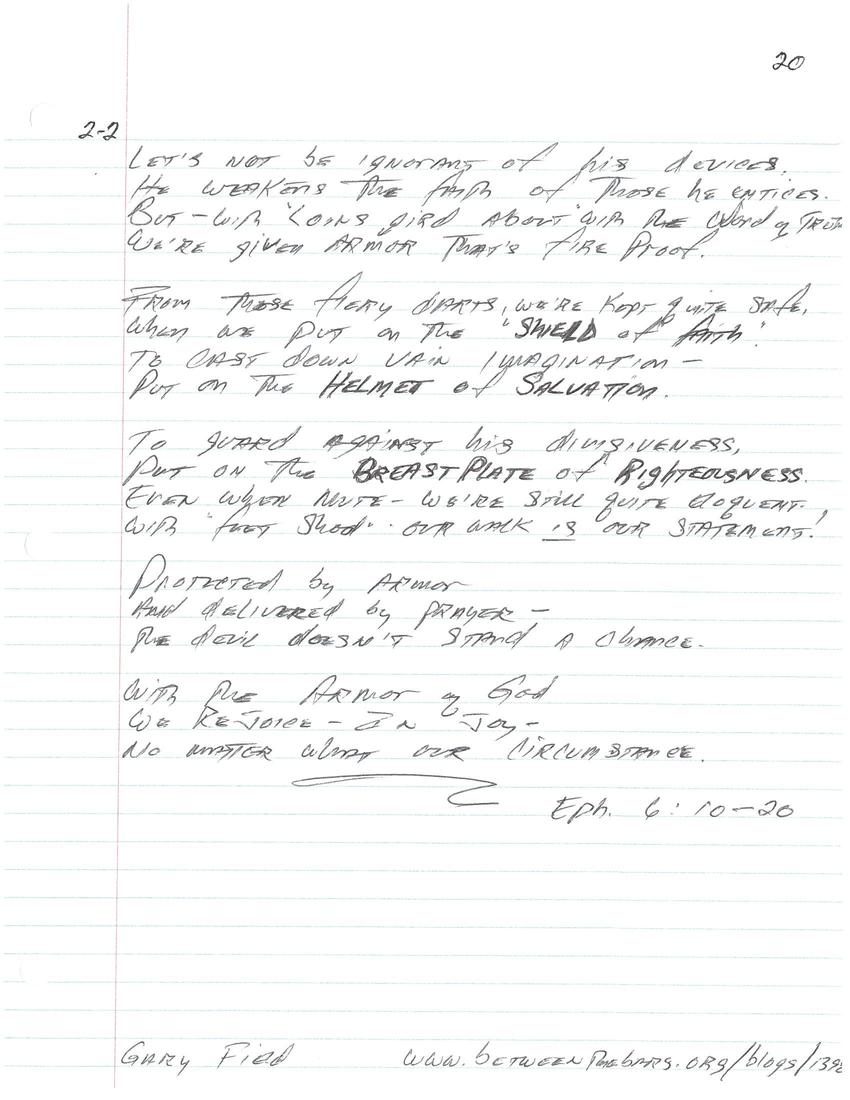 20
2-2
LET'S NOT bE IGNORANT of his dEVICES.
HE WEAKENS THE FAITH of THOSE hE ENTICES.
BUT - WITH "LOINS GIRD ABOUT" WITH THE WORd of TRUTH
WE'RE given ARMOR THAT'S FIRE PROOF.
FROM THOSE fiERY dARTS, WE'RE KEPT quITE SAfE,
WHEN WE PUT on THE "SHIELD of faith".
TO CAST dOWN VAIN IMAGINATION -
PUT on THE HELMET of SALVATION.
TO guARd AgAINST his diviSIVENESS,
PUT ON THE BREASTPLATE of RIghTEOUSNESS.
EVEN WHEN MUTE - WE'RE STILL quITE ELOQUENT.
WITH "fEET Shod" - OUR WALK is OUR STATEMENT!
PROTECTED by ARMOR
ANd dELIVERED by PRAYER -
THE dEVIL doESN'T STANd A ChANCE.
WITH THE ARMOR of God
WE REJOICE - IN JOY -
NO MATTER WHAT OUR CIRCUMSTANCE.
Eph. 6:10-20
GARY FiEld
www.bETWEENTHEbARS.ORg/blogs/1398